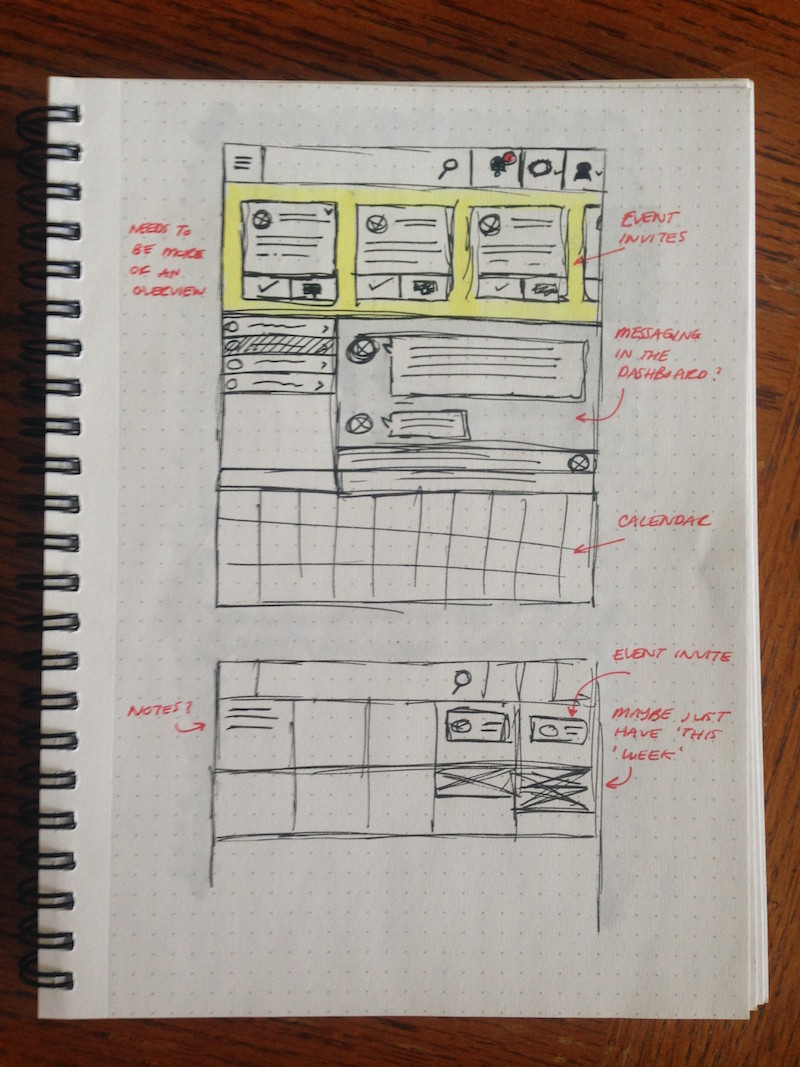 NEEDS TO
BE MORE
OF AN
OVERVIEW
EVENT
INVITES
MESSAGING
IN THE
DASHBOARD?
CALENDAR
EVENT INVITE
NOTES?
MAYBE JUST
HAVE 'THIS
'WEEK'